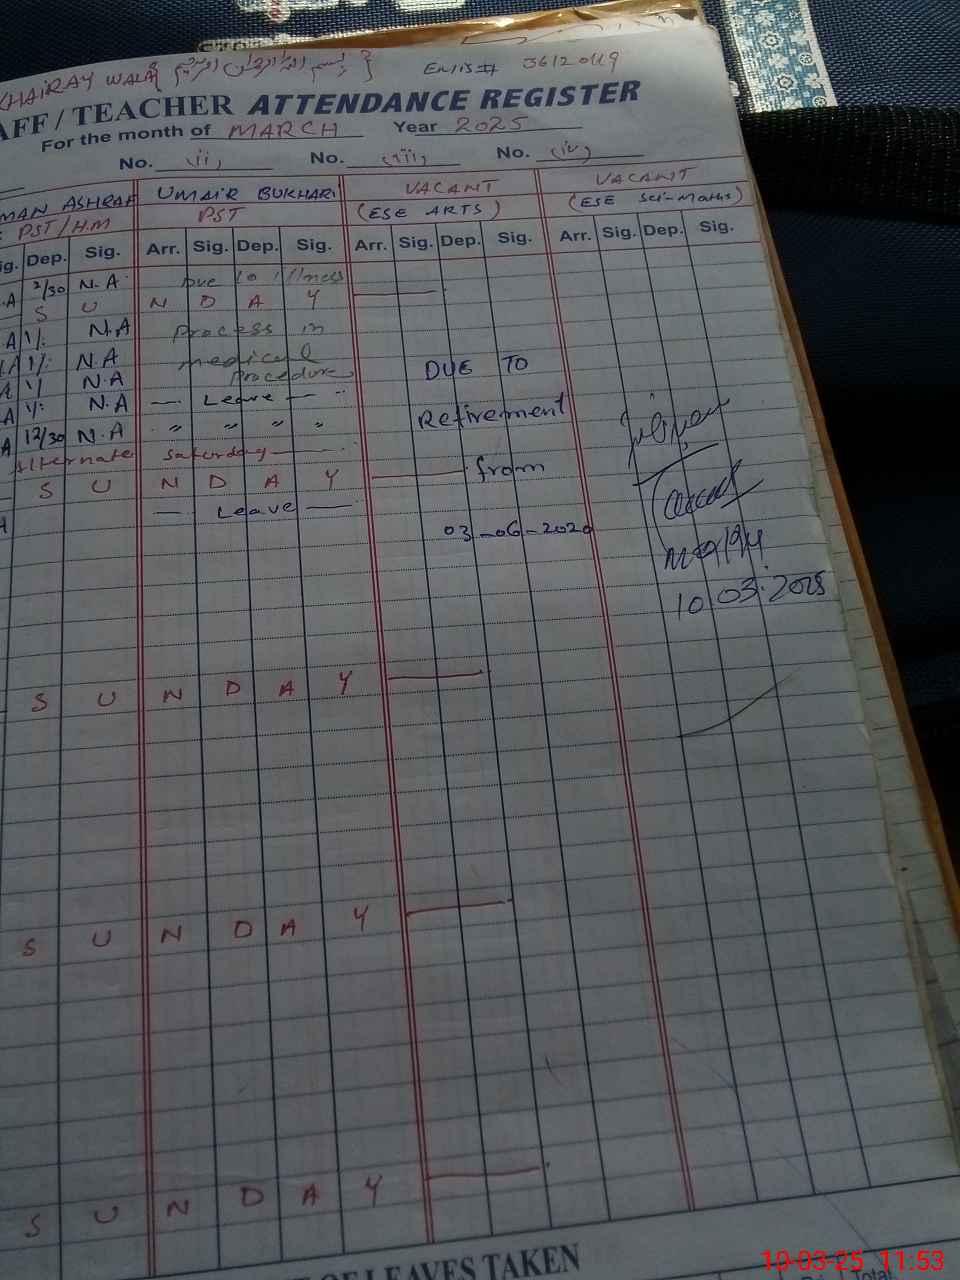 KHAIRAY WALA { بسم اللہ الرحمٰن الرحیم } Emis# 36120119
AFF / TEACHER ATTENDANCE REGISTER
For the month of MARCH Year 2025
No. (ii) No. (iii) No. (iv)
MAN ASHRAF UMAIR BUKHARI VACANT VACANT
PST/H.M PST (ESE ARTS) (ESE Sci-Maths)
ig. Dep. Sig. Arr. Sig. Dep. Sig. Arr. Sig. Dep. Sig. Arr. Sig. Dep. Sig.
.A 2/30 N.A Due to illness
S U N D A Y
A 1/: N.A Process in
A 1/: N.A medical DUE TO
A 1/ N.A Procedure
A 1/: N.A — Leave — Retirement
A 12/30 N.A " " " "
Alternate Saturday
S U N D A Y from
— Leave —
03-06-2020
10.03.2025
S U N D A Y
S U N D A Y
S U N D A Y
OF LEAVES TAKEN
Total
10-03-25 11:53